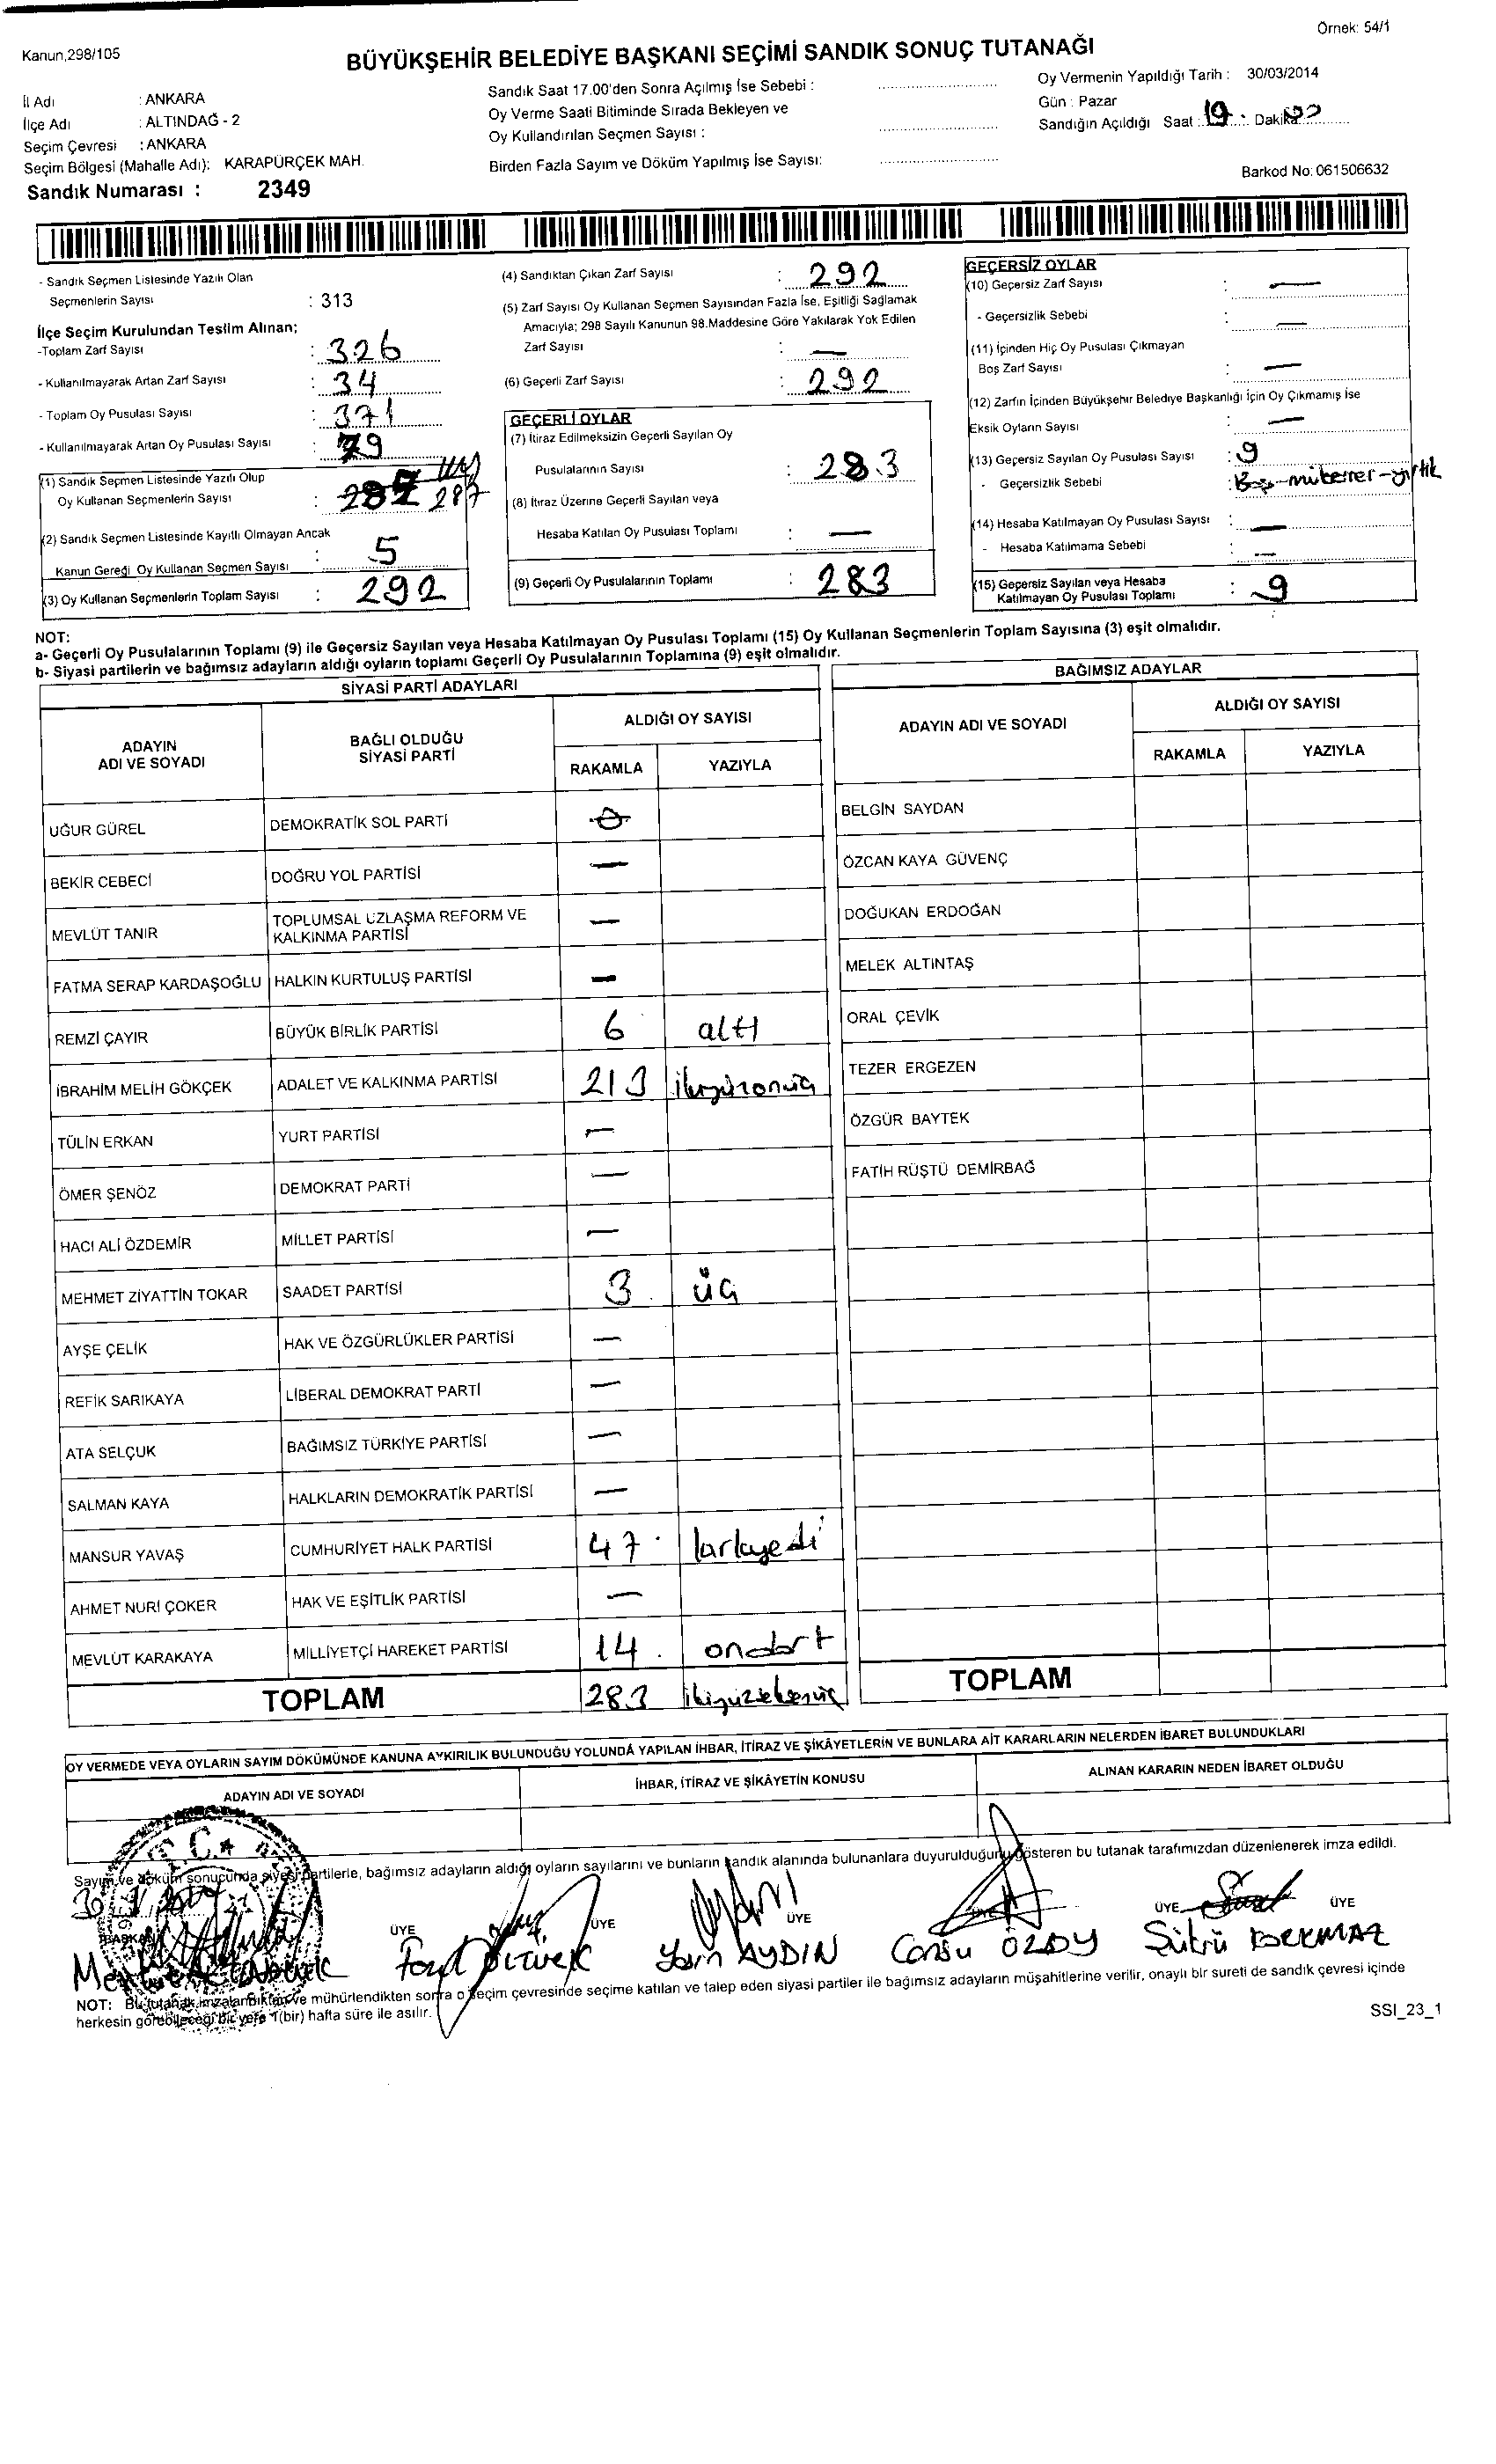 Örnek: 54/1
Kanun,298/105
BÜYÜKŞEHİR BELEDİYE BAŞKANI SEÇİMİ SANDIK SONUÇ TUTANAĞI
İl Adı : ANKARA
İlçe Adı : ALTINDAĞ - 2
Seçim Çevresi : ANKARA
Seçim Bölgesi (Mahalle Adı): KARAPÜRÇEK MAH.
Sandık Numarası : 2349
Sandık Saat 17.00'den Sonra Açılmış İse Sebebi :
Oy Verme Saati Bitiminde Sırada Bekleyen ve
Oy Kullandırılan Seçmen Sayısı :
Birden Fazla Sayım ve Döküm Yapılmış İse Sayısı:
Oy Vermenin Yapıldığı Tarih : 30/03/2014
Gün : Pazar
Sandığın Açıldığı Saat : 19 : Dakika
Barkod No: 061506632
- Sandık Seçmen Listesinde Yazılı Olan
Seçmenlerin Sayısı : 313
İlçe Seçim Kurulundan Teslim Alınan;
-Toplam Zarf Sayısı : 326
- Kullanılmayarak Artan Zarf Sayısı : 34
- Toplam Oy Pusulası Sayısı : 371
- Kullanılmayarak Artan Oy Pusulası Sayısı : 79
(1) Sandık Seçmen Listesinde Yazılı Olup
Oy Kullanan Seçmenlerin Sayısı : 287
(2) Sandık Seçmen Listesinde Kayıtlı Olmayan Ancak
Kanun Gereği Oy Kullanan Seçmen Sayısı : 5
(3) Oy Kullanan Seçmenlerin Toplam Sayısı : 292
(4) Sandıktan Çıkan Zarf Sayısı : 292
(5) Zarf Sayısı Oy Kullanan Seçmen Sayısından Fazla İse, Eşitliği Sağlamak
Amacıyla; 298 Sayılı Kanunun 98.Maddesine Göre Yakılarak Yok Edilen
Zarf Sayısı : —
(6) Geçerli Zarf Sayısı : 292
GEÇERLİ OYLAR
(7) İtiraz Edilmeksizin Geçerli Sayılan Oy
Pusulalarının Sayısı : 283
(8) İtiraz Üzerine Geçerli Sayılan veya
Hesaba Katılan Oy Pusulası Toplamı : —
(9) Geçerli Oy Pusulalarının Toplamı : 283
GEÇERSİZ OYLAR
(10) Geçersiz Zarf Sayısı : —
- Geçersizlik Sebebi : —
(11) İçinden Hiç Oy Pusulası Çıkmayan
Boş Zarf Sayısı : —
(12) Zarfın İçinden Büyükşehir Belediye Başkanlığı İçin Oy Çıkmamış İse
Eksik Oyların Sayısı : —
(13) Geçersiz Sayılan Oy Pusulası Sayısı : 9
- Geçersizlik Sebebi : Boş-mükerrer-yırtık
(14) Hesaba Katılmayan Oy Pusulası Sayısı : —
- Hesaba Katılmama Sebebi : —
(15) Geçersiz Sayılan veya Hesaba
Katılmayan Oy Pusulası Toplamı : 9
NOT:
a- Geçerli Oy Pusulalarının Toplamı (9) ile Geçersiz Sayılan veya Hesaba Katılmayan Oy Pusulası Toplamı (15) Oy Kullanan Seçmenlerin Toplam Sayısına (3) eşit olmalıdır.
b- Siyasi partilerin ve bağımsız adayların aldığı oyların toplamı Geçerli Oy Pusulalarının Toplamına (9) eşit olmalıdır.
SİYASİ PARTİ ADAYLARI
ADAYIN ADI VE SOYADI BAĞLI OLDUĞU SİYASİ PARTİ ALDIĞI OY SAYISI
RAKAMLA YAZIYLA
UĞUR GÜREL DEMOKRATİK SOL PARTİ
BEKİR CEBECİ DOĞRU YOL PARTİSİ —
MEVLÜT TANIR TOPLUMSAL UZLAŞMA REFORM VE KALKINMA PARTİSİ —
FATMA SERAP KARDAŞOĞLU HALKIN KURTULUŞ PARTİSİ —
REMZİ ÇAYIR BÜYÜK BİRLİK PARTİSİ 6 altı
İBRAHİM MELİH GÖKÇEK ADALET VE KALKINMA PARTİSİ 213 ikiyüzonüç
TÜLİN ERKAN YURT PARTİSİ —
ÖMER ŞENÖZ DEMOKRAT PARTİ —
HACI ALİ ÖZDEMİR MİLLET PARTİSİ —
MEHMET ZİYATTİN TOKAR SAADET PARTİSİ 3 üç
AYŞE ÇELİK HAK VE ÖZGÜRLÜKLER PARTİSİ —
REFİK SARIKAYA LİBERAL DEMOKRAT PARTİ —
ATA SELÇUK BAĞIMSIZ TÜRKİYE PARTİSİ —
SALMAN KAYA HALKLARIN DEMOKRATİK PARTİSİ —
MANSUR YAVAŞ CUMHURİYET HALK PARTİSİ 47 kırkyedi
AHMET NURİ ÇOKER HAK VE EŞİTLİK PARTİSİ —
MEVLÜT KARAKAYA MİLLİYETÇİ HAREKET PARTİSİ 14 ondört
TOPLAM 283 ikiyüzseksenüç
BAĞIMSIZ ADAYLAR
ADAYIN ADI VE SOYADI ALDIĞI OY SAYISI
RAKAMLA YAZIYLA
BELGİN SAYDAN
ÖZCAN KAYA GÜVENÇ
DOĞUKAN ERDOĞAN
MELEK ALTINTAŞ
ORAL ÇEVİK
TEZER ERGEZEN
ÖZGÜR BAYTEK
FATİH RÜŞTÜ DEMİRBAĞ
TOPLAM
OY VERMEDE VEYA OYLARIN SAYIM DÖKÜMÜNDE KANUNA AYKIRILIK BULUNDUĞU YOLUNDA YAPILAN İHBAR, İTİRAZ VE ŞİKÂYETLERİN VE BUNLARA AİT KARARLARIN NELERDEN İBARET BULUNDUKLARI
ADAYIN ADI VE SOYADI İHBAR, İTİRAZ VE ŞİKÂYETİN KONUSU ALINAN KARARIN NEDEN İBARET OLDUĞU
T.C.
Sayım ve döküm sonucunda siyasi partilerle, bağımsız adayların aldığı oyların sayılarını ve bunların sandık alanında bulunanlara duyurulduğunu gösteren bu tutanak tarafımızdan düzenlenerek imza edildi.
BAŞKAN ÜYE ÜYE ÜYE ÜYE ÜYE
AYDIN Cansu ÖZSOY Şükrü
NOT: Bu tutanak imzalandıktan ve mühürlendikten sonra o seçim çevresinde seçime katılan ve talep eden siyasi partiler ile bağımsız adayların müşahitlerine verilir, onaylı bir sureti de sandık çevresi içinde
herkesin görebileceği bir yere 1(bir) hafta süre ile asılır.
SSI_23_1